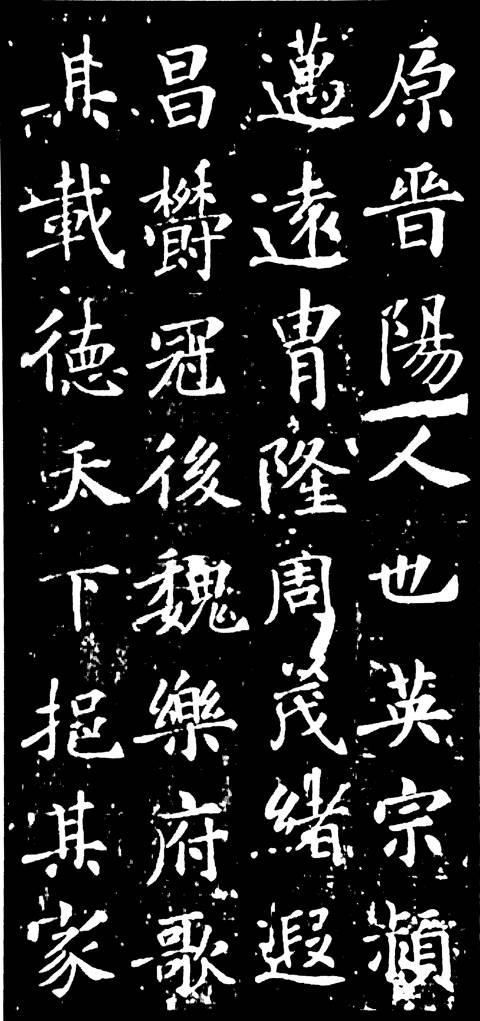 原晉陽人也英宗
邁遠冑隆周茂緒遐
昌欝冠後魏樂府歌
其載德天下挹其家